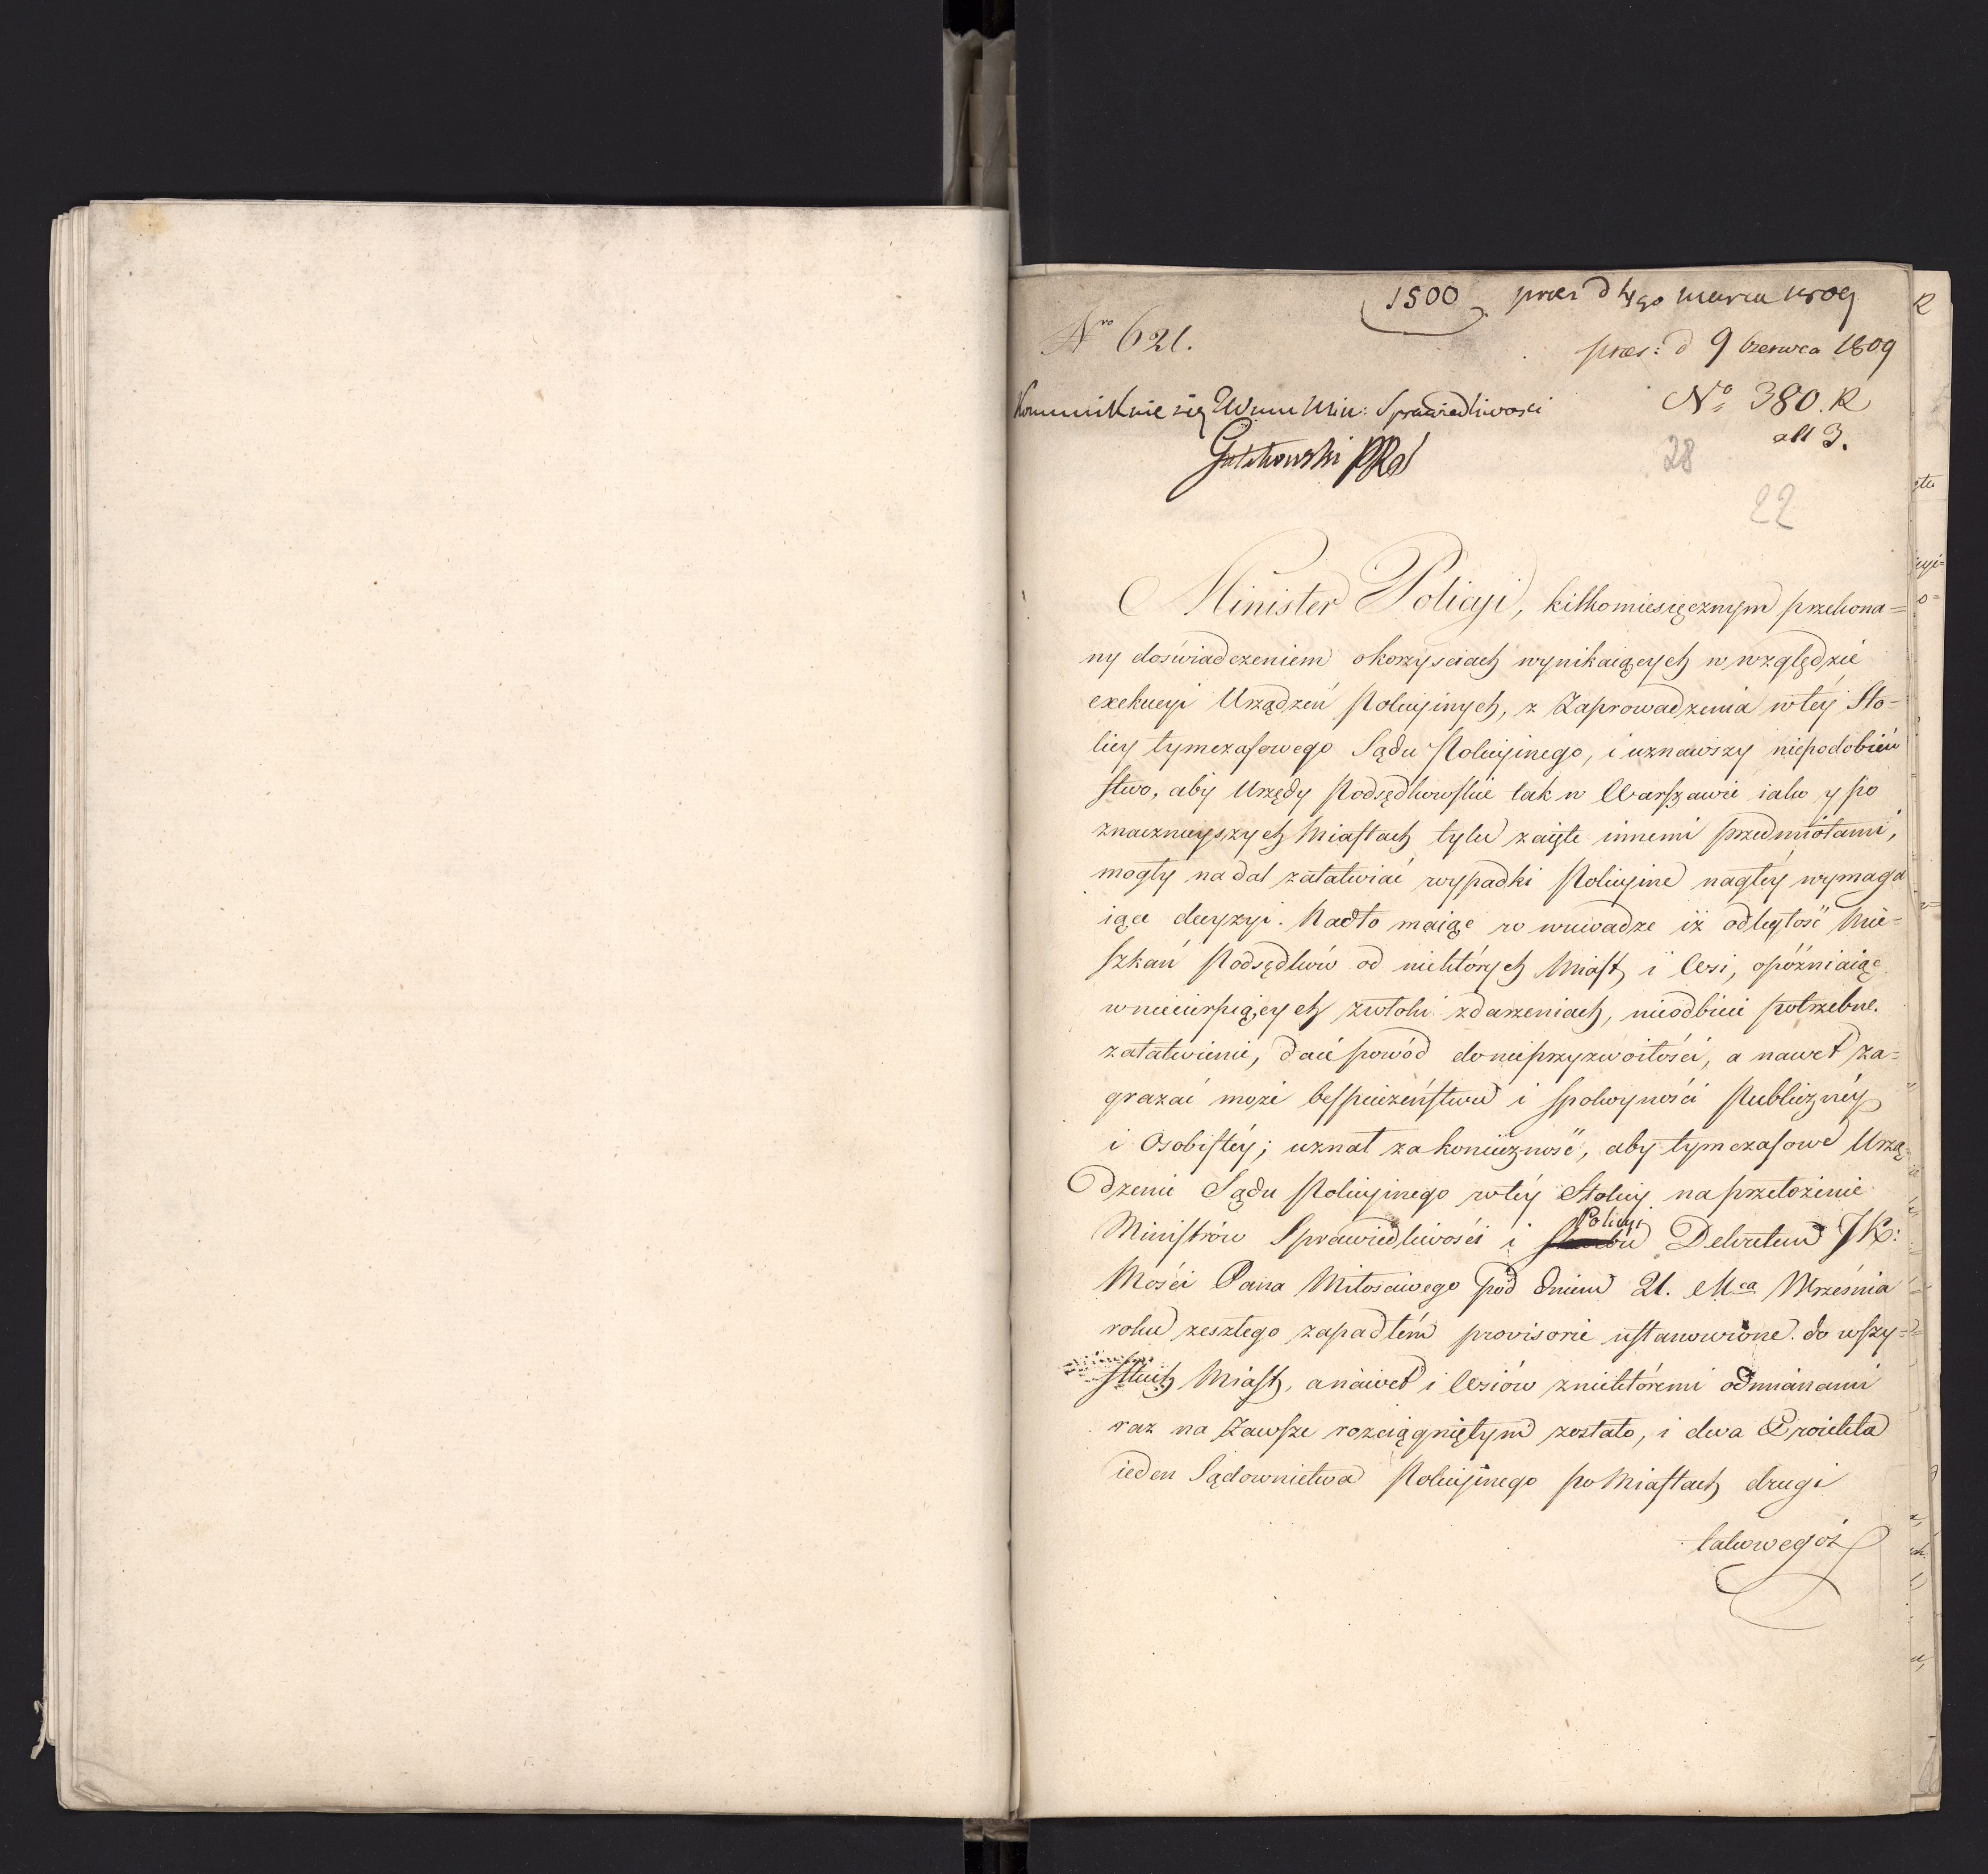 1500 præs d 4go marca 1809
Nro 621.
præs: d 9 Czerwca 1809
Kommunikuie się JWmu Min: Sprawiedliwosci
No 380. R
all 3.
Gutakowski PRS
28
22
Minister Policyi, kilkomiesięcznym przekona=
ny doświadczeniem o korzysciach wynikaiących w względzie
exekucyi Urządzeń Policyinych, z Zaprowadzenia w tey Sto=
licy tymczasowego Sądu Policyinego, i uznawszy niepodobień
stwo, aby Urzędy Podsędkowskie tak w Warszawie iako y po
znacznieyszych Miastach tylu zaięte innemi przedmiotami,
mogły nadal załatwiać wypadki Policyine nagłey wymaga
iące decyzyi. Nadto maiąc w uwadze iż odległość Mie=
szkań Podsędków od niektórych Miast i Wsi, opóźniaiąc
w niecierpiących zwłoki zdarzeniach, nieodbicie potrzebne
załatwienie, dać powód do nieprzyzwoitości, a nawet za=
grażać może bespieczeństwu i spokoyności Publiczney
i Osobistey; uznał za konieczność, aby tymczasowe Urzą=
dzenie Sądu Policyinego w tey Stolicy na przełożenie
Ministrów Sprawiedliwości i Policyi Dekretem JK:
Mości Pana Miłosciwego pod dniem 21. Mca Września
roku zeszłego zapadłém provisorie ustanowione do wszy=
stkich Miast, a nawet i Wsiów z niektóremi odmianami
raz na zawsze rozciągniętym zostało, i dwa Proiekta
ieden Sądownictwa Policyinego po Miastach drugi
takowegoż